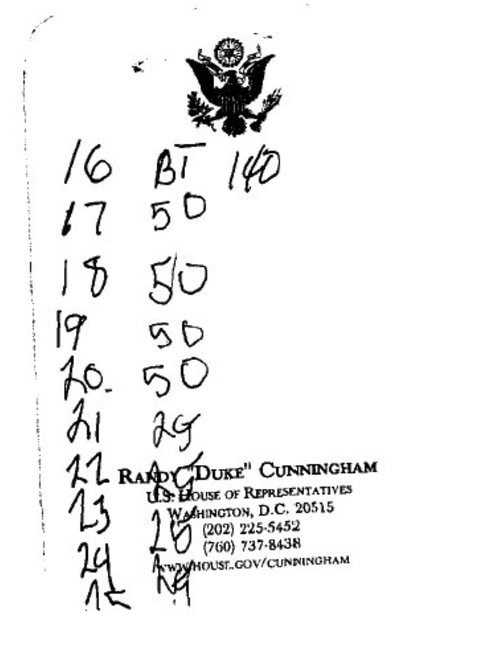 16 BT 140
17 50
18 50
19 50
20. 50
21 25
22 25
RANDY "DUKE" CUNNINGHAM
U.S. HOUSE OF REPRESENTATIVES
23 25
WASHINGTON, D.C. 20515
(202) 225-5452
(760) 737-8438
24 25
WWW.HOUSE.GOV/CUNNINGHAM
25